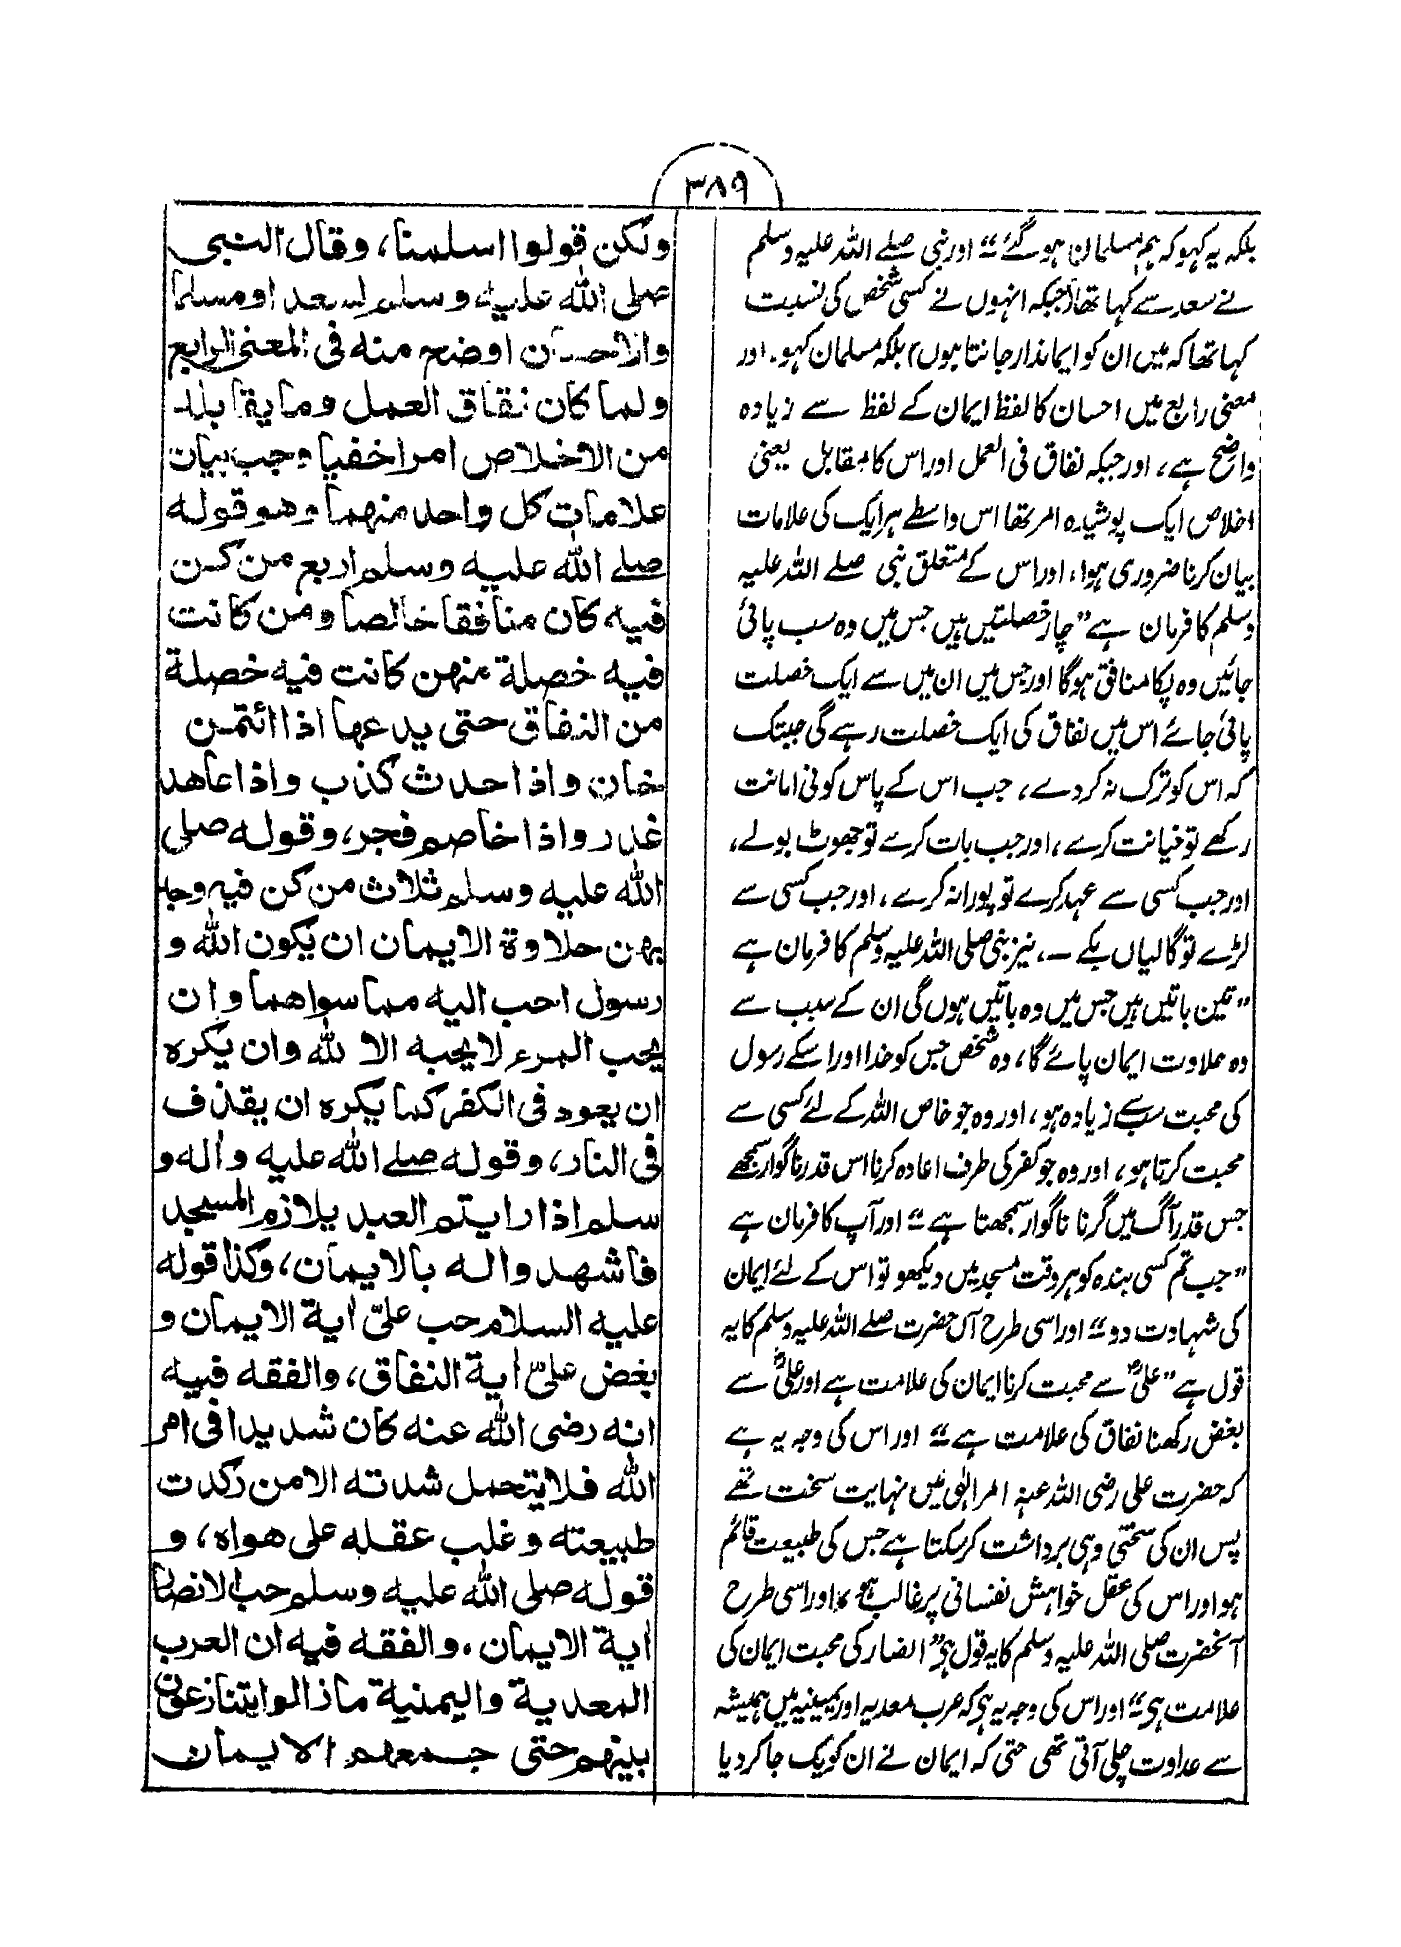 ۳۸۹
بلکہ یہ کہو کہ ہم مسلمان ہو گئے“ اور نبی صلے اللہ علیہ وسلم
نے سعد سے کہا تھا (جبکہ انہوں نے کسی شخص کی نسبت
کہا تھا کہ میں ان کو ایماندار جانتا ہوں) بلکہ مسلمان کہو۔ اور
معنی رابع میں احسان کا لفظ ایمان کے لفظ سے زیادہ
واضح ہے، اور جبکہ نفاق فی العمل اور اس کا مقابل یعنی
اخلاص ایک پوشیدہ امر تھا اس واسطے ہر ایک کی علامات
بیان کرنا ضروری ہوا، اور اس کے متعلق نبی صلے اللہ علیہ
وسلم کا فرمان ہے ”چار خصلتیں ہیں جس میں وہ سب پائی
جائیں وہ پکا منافق ہوگا اور جس میں ان میں سے ایک خصلت
پائی جائے اس میں نفاق کی ایک خصلت رہے گی جبتک
کہ اس کو ترک نہ کر دے، جب اس کے پاس کوئی امانت
رکھے تو خیانت کرے، اور جب بات کرے تو جھوٹ بولے،
اور جب کسی سے عہد کرے تو پورا نہ کرے، اور جب کسی سے
لڑے تو گالیاں بکے ۔، نیز نبی صلی اللہ علیہ وسلم کا فرمان ہے
”تین باتیں ہیں جس میں وہ باتیں ہوں گی ان کے سبب سے
وہ حلاوت ایمان پائے گا، وہ شخص جس کو خدا اور اسکے رسول
کی محبت سب سے زیادہ ہو، اور وہ جو خاص اللہ کے لئے کسی سے
محبت کرتا ہو، اور وہ جو کفر کی طرف اعادہ کرنا اس قدر ناگوار سمجھے
جس قدر آگ میں گرنا ناگوار سمجھتا ہے“ اور آپ کا فرمان ہے
”جب تم کسی بندہ کو ہر وقت مسجد میں دیکھو تو اس کے لئے ایمان
کی شہادت دو“ اور اسی طرح آں حضرت صلے اللہ علیہ وسلم کا یہ
قول ہے ”علیؓ سے محبت کرنا ایمان کی علامت ہے اور علیؓ سے
بغض رکھنا نفاق کی علامت ہے“ اور اس کی وجہ یہ ہے
کہ حضرت علی رضی اللہ عنہ امر الٰہی میں نہایت سخت تھے
پس ان کی سختی وہی برداشت کر سکتا ہے جس کی طبیعت قائم
ہو اور اس کی عقل خواہش نفسانی پر غالب ہو، اور اسی طرح
آنحضرت صلی اللہ علیہ وسلم کا یہ قول ہی ”انصار کی محبت ایمان کی
علامت ہی“ اور اس کی وجہ یہ ہی کہ عرب معدیہ اور یمینیہ میں ہمیشہ
سے عداوت چلی آتی تھی حتی کہ ایمان نے ان کو یک جا کر دیا
ولكن قولوا اسلمنا، وقال النبى
صلى الله عليه وسلم لسعد او مسلما
والاحسان اوضح منه فى المعنى الرابع
ولما كان نفاق العمل وما يقابله
من الاخلاص امرا خفيا وجب بيان
علامات كل واحد منهما وهو قوله
صلے الله عليه وسلم اربع من كن
فيه كان منافقا خالصا ومن كانت
فيه خصلة منهن كانت فيه خصلة
من النفاق حتى يدعها اذا ائتمن
خان واذا حدث كذب واذا عاهد
غدر واذا خاصم فجر، وقوله صلى
الله عليه وسلم ثلاث من كن فيه وجد
بهن حلاوة الايمان ان يكون الله و
رسول احب اليه مما سواهما وان
يحب المرء لا يحبه الا لله وان يكره
ان يعود فى الكفر كما يكره ان يقذف
فى النار، وقوله صلے الله عليه واله و
سلم اذا رايتم العبد يلازم المسجد
فاشهدوا له بالايمان، وكذا قوله
عليه السلام حب علىّ اية الايمان و
بغض علىّ اية النفاق، والفقه فيه
انه رضى الله عنه كان شديدا فى امر
الله فلا يتحمل شدته الا من ركدت
طبيعته وغلب عقله على هواه، و
قوله صلى الله عليه وسلم حب الانصار
اية الايمان، والفقه فيه ان العرب
المعدية واليمنية مازالوا يتنازعون
بينهم حتى جمعهم الايمان